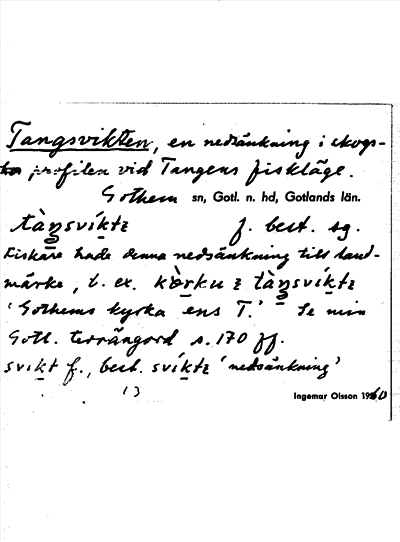 Tangsvikten, en nedsänkning i skogs-
profilen vid Tangens fiskläge.
Gothem sn, Gotl. n. hd, Gotlands län.
tàŋsvíktɛ f. best. sg.
Fiskare hade denna nedsänkning till land-
märke, t. ex. kòrku ɛ tàŋsvíktɛ
'Gothems kyrka ens T.' Se min
Gotl. terrängord s. 170 ff.
svikt f., best. svíktɛ 'nedsänkning'
Ingemar Olsson 1960